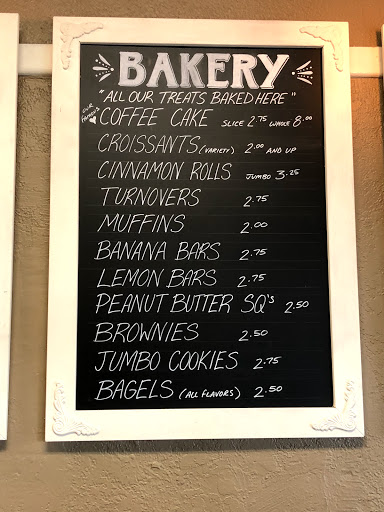 BAKERY
"ALL OUR TREATS BAKED HERE"
OUR FAMOUS COFFEE CAKE SLICE 2.75 WHOLE 8.00
CROISSANTS (VARIETY) 2.00 AND UP
CINNAMON ROLLS JUMBO 3.25
TURNOVERS 2.75
MUFFINS 2.00
BANANA BARS 2.75
LEMON BARS 2.75
PEANUT BUTTER SQ's 2.50
BROWNIES 2.50
JUMBO COOKIES 2.75
BAGELS (ALL FLAVORS) 2.50